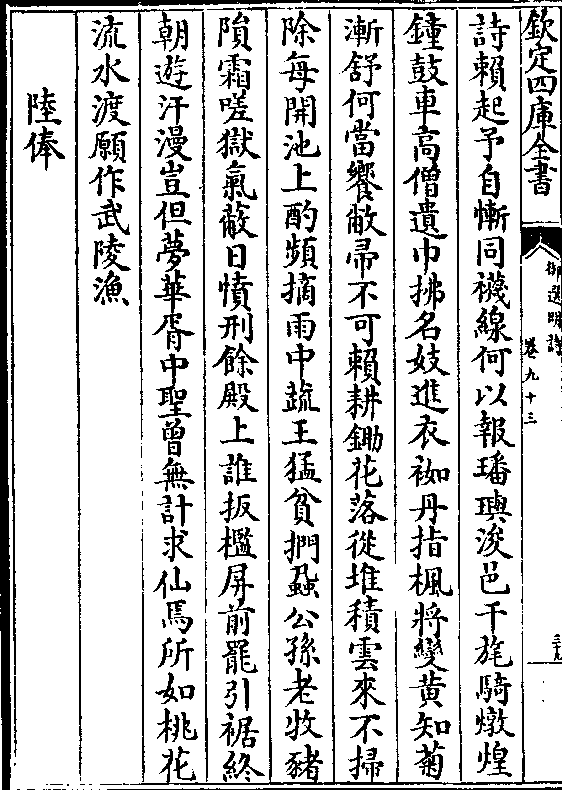 欽定四庫全書
御選明詩
卷九十三
三十九
詩賴起予自慚同襪線何以報璠璵浚邑干旄騎燉煌
鐘鼓車高僧遺巾拂名妓進衣袽丹指楓將變黄知菊
漸舒何當饗敝帚不可賴耕鋤花落從堆積雲來不掃
除每開池上酌頻摘雨中蔬王猛貧捫蝨公孫老牧豬
隕霜嗟獄氣蔽日憤刑餘殿上誰扳檻屏前罷引裾終
朝遊汗漫豈但夢華胥中聖曾無計求仙馬所如桃花
流水渡願作武陵漁
陸俸